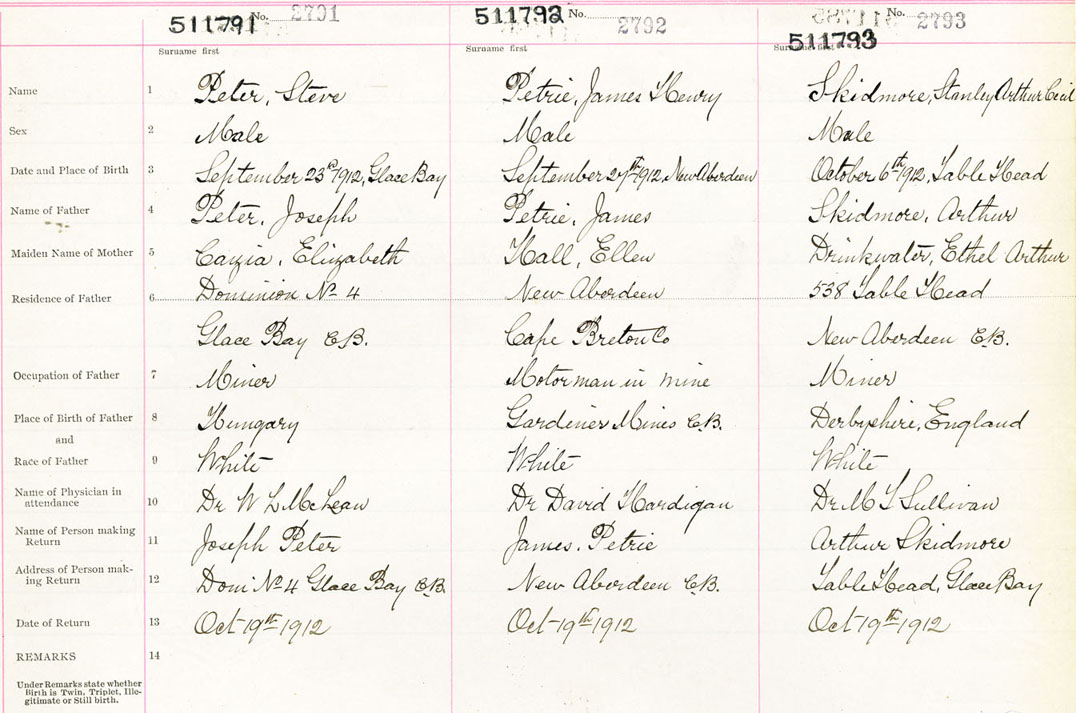 511791 No. 2791 511792 No. 2792 511793 No. 2793
Surname first Surname first Surname first
Name 1 Peter, Steve Petrie, James Henry Skidmore, Stanley Arthur Cecil
Sex 2 Male Male Male
Date and Place of Birth 3 September 23rd 1912, Glace Bay September 27th 1912, New Aberdeen October 6th 1912, Table Head
Name of Father 4 Peter, Joseph Petrie, James Skidmore, Arthur
Maiden Name of Mother 5 Elizabeth Hall, Ellen Drinkwater, Ethel Arthur
Residence of Father 6 Dominion No 4 New Aberdeen 538 Table Head
Glace Bay C.B. Cape Breton Co New Aberdeen C.B.
Occupation of Father 7 Miner Motorman in mine Miner
Place of Birth of Father 8 Hungary Gardiner Mines C.B. Derbyshire, England
and
Race of Father 9 White White White
Name of Physician in
attendance 10 Dr W L McLean Dr David Hardigan Dr M T Sullivan
Name of Person making
Return 11 Joseph Peter James. Petrie Arthur Skidmore
Address of Person mak-
ing Return 12 Dom No 4 Glace Bay C.B. New Aberdeen C.B. Table Head, Glace Bay
Date of Return 13 Oct 19th 1912 Oct 19th 1912 Oct 19th 1912
REMARKS 14
Under Remarks state whether
Birth is Twin, Triplet, Ille-
gitimate or Still birth.